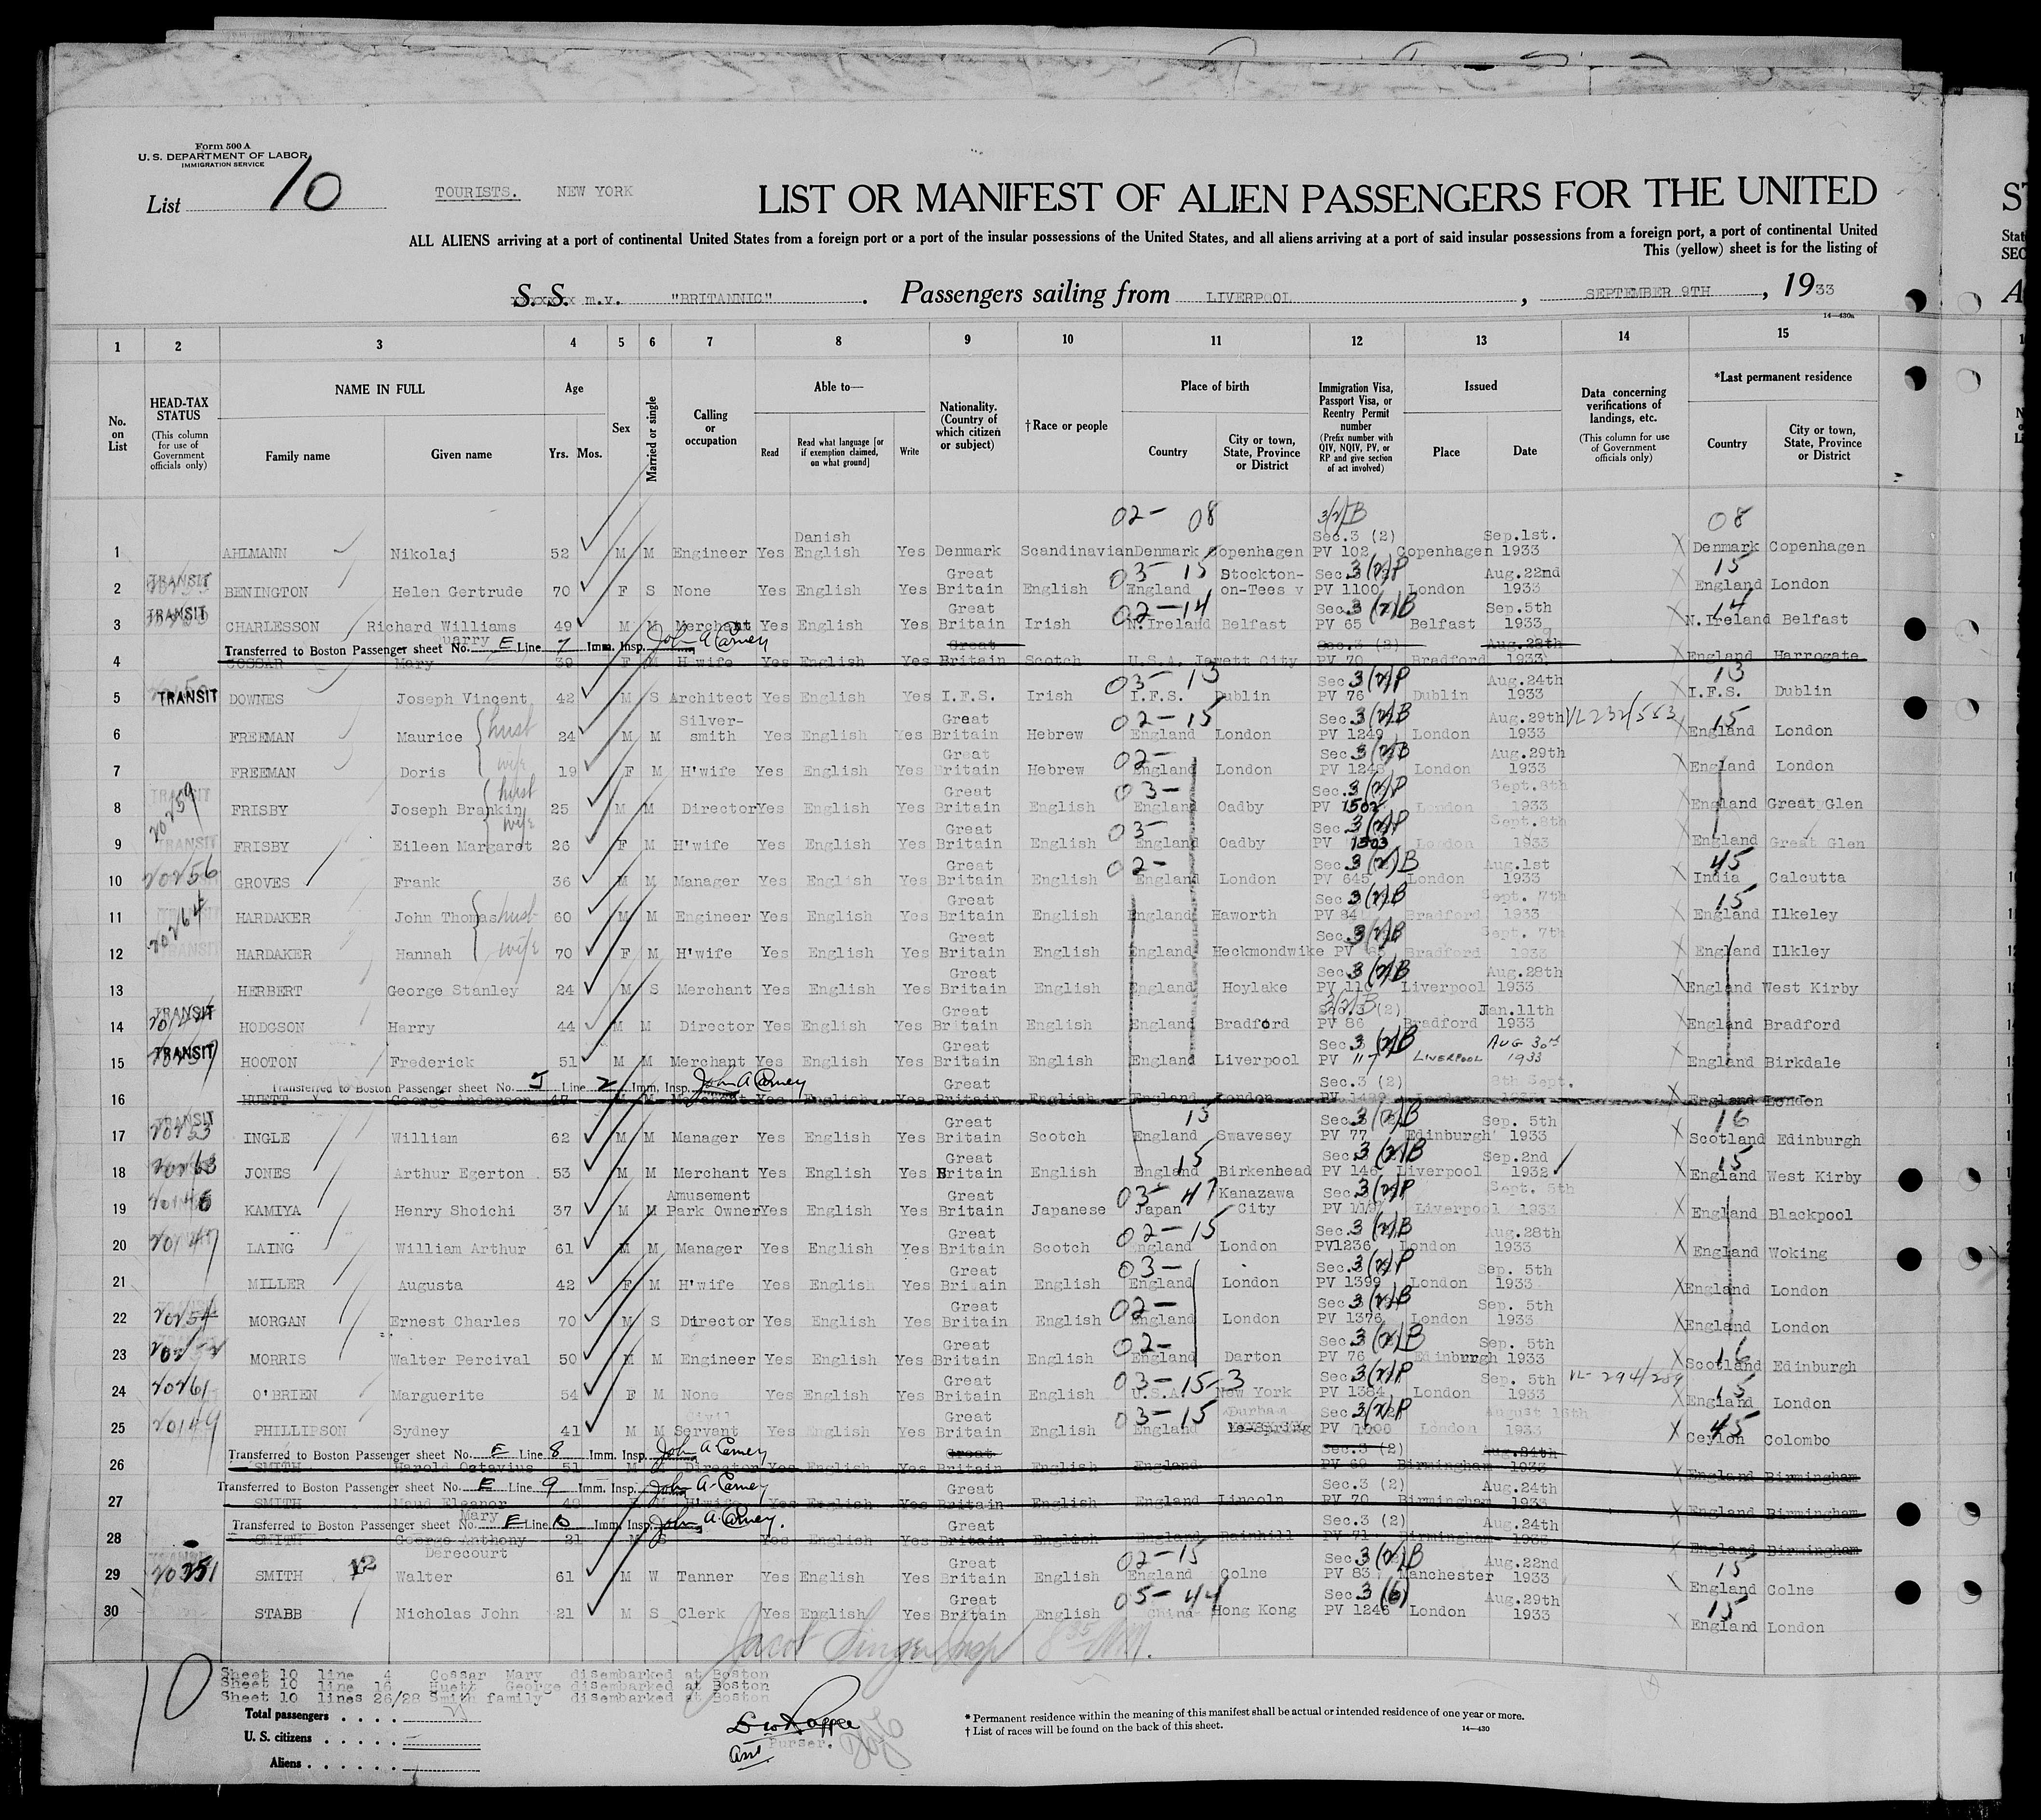 Form 500 A
U. S. DEPARTMENT OF LABOR
IMMIGRATION SERVICE
List 10
TOURISTS. NEW YORK
LIST OR MANIFEST OF ALIEN PASSENGERS FOR THE UNITED
ALL ALIENS arriving at a port of continental United States from a foreign port or a port of the insular possessions of the United States, and all aliens arriving at a port of said insular possessions from a foreign port, a port of continental United
This (yellow) sheet is for the listing of
S. S. m.v. "BRITANNIC" . Passengers sailing from LIVERPOOL , SEPTEMBER 9TH , 1933
14—430a
1 2 3 4 5 6 7 8 9 10 11 12 13 14 15
No. on List
HEAD-TAX STATUS (This column for use of Government officials only)
NAME IN FULL
Family name Given name
Age
Yrs. Mos.
Sex
Married or single
Calling or occupation
Able to—
Read Read what language [or if exemption claimed, on what ground] Write
Nationality. (Country of which citizen or subject)
†Race or people
Place of birth
Country City or town, State, Province or District
Immigration Visa, Passport Visa, or Reentry Permit number (Prefix number with QIV, NQIV, PV, or RP and give section of act involved)
Issued
Place Date
Data concerning verifications of landings, etc. (This column for use of Government officials only)
*Last permanent residence
Country City or town, State, Province or District
02- 08 3(2)B 08
1 AHLMANN Nikolaj 52 M M Engineer Yes Danish English Yes Denmark Scandinavian Denmark Copenhagen Sec.3 (2) PV 102 Copenhagen Sep.1st. 1933 Denmark Copenhagen
2 TRANSIT BENINGTON Helen Gertrude 70 F S None Yes English Yes Great Britain English 03-15 England Stockton-on-Tees Sec. 3(2)P PV 1100 London Aug.22nd 1933 15 England London
3 TRANSIT CHARLESSON Richard Williams 49 M M Merchant Yes English Yes Great Britain Irish 02-14 N.Ireland Belfast Sec. 3(2)B PV 65 Belfast Sep.5th 1933 14 N.Ireland Belfast
Transferred to Boston Passenger sheet No. E Line 7 Imm. Insp. John A Carney
4 COSSAR Mary Quarry 39 F M H'wife Yes English Yes Great Britain Scotch U.S.A. Jewett City Sec.3 (2) PV 70 Bradford Aug.28th 1933 England Harrogate
5 TRANSIT DOWNES Joseph Vincent 42 M S Architect Yes English Yes I.F.S. Irish 03-13 I.F.S. Dublin Sec 3(2)P PV 76 Dublin Aug.24th 1933 13 I.F.S. Dublin
6 FREEMAN Maurice husb 24 M M Silver-smith Yes English Yes Great Britain Hebrew 02-15 England London Sec. 3(2)B PV 1249 London Aug.29th 1933 VL 232/553 15 England London
7 FREEMAN Doris wife 19 F M H'wife Yes English Yes Great Britain Hebrew 02- England London Sec 3(2)B London Aug.29th 1933 England London
8 TRANSIT 20259 FRISBY Joseph Brankin husb 25 M M Director Yes English Yes Great Britain English 03- England Oadby Sec. 3(2)P PV 1502 London Sept.8th 1933 England Great Glen
9 TRANSIT FRISBY Eileen Margaret wife 26 F M H'wife Yes English Yes Great Britain English 03 England Oadby Sec 3(2)P PV 1503 London Sept.8th 1933 England Great Glen
10 20256 GROVES Frank 36 M M Manager Yes English Yes Great Britain English 02- England London Sec 3(2)B PV 645 London Aug.1st 1933 45 India Calcutta
11 20264 HARDAKER John Thomas husb 60 M M Engineer Yes English Yes Great Britain English England Haworth Sec 3(2)B PV 84 Bradford Sept. 7th 1933 15 England Ilkeley
12 TRANSIT HARDAKER Hannah wife 70 F M H'wife Yes English Yes Great Britain English England Heckmondwike Sec 3(2)B PV Bradford Sept. 7th 1933 England Ilkley
13 HERBERT George Stanley 24 M S Merchant Yes English Yes Great Britain English England Hoylake Sec. 3(2)B PV 110 Liverpool Aug.28th 1933 England West Kirby
14 TRANSIT HODGSON Harry 44 M M Director Yes English Yes Great Britain English England Bradford 3(2)B Sec.3 (2) PV 86 Bradford Jan.11th 1933 England Bradford
15 TRANSIT HOOTON Frederick 51 M M Merchant Yes English Yes Great Britain English England Liverpool Sec 3(2)B PV 117 LIVERPOOL AUG 30th 1933 England Birkdale
Transferred to Boston Passenger sheet No. J Line 2 Imm. Insp. John A Carney
16 HUETT George Anderson 47 M M Merchant Yes English Yes Great Britain English England London Sec.3 (2) PV 1489 London 8th Sept. 1933 England London
17 TRANSIT 20253 INGLE William 62 M M Manager Yes English Yes Great Britain Scotch 15 England Swavesey Sec. 3(2)B PV 77 Edinburgh Sep. 5th 1933 16 Scotland Edinburgh
18 20263 JONES Arthur Egerton 53 M M Merchant Yes English Yes Great Britain English 15 England Birkenhead Sec. 3(2)B PV 146 Liverpool Sep.2nd 1932 15 England West Kirby
19 20146 KAMIYA Henry Shoichi 37 M M Amusement Park Owner Yes English Yes Great Britain Japanese 03-47 Japan Kanazawa City Sec 3(2)P PV Liverpool Sept. 5th 1933 England Blackpool
20 20147 LAING William Arthur 61 M M Manager Yes English Yes Great Britain Scotch 02-15 England London Sec. 3(2)B PV1236 London Aug.28th 1933 England Woking
21 MILLER Augusta 42 F M H'wife Yes English Yes Great Britain English 03- England London Sec. 3(2)P PV 1399 London Sep. 5th 1933 England London
22 20254 MORGAN Ernest Charles 70 M S Director Yes English Yes Great Britain English 02- England London Sec 3(2)B PV 1376 London Sep. 5th 1933 England London
23 20252 MORRIS Walter Percival 50 M M Engineer Yes English Yes Great Britain English 02- England Darton Sec 3(2)B PV 76 Edinburgh Sep. 5th 1933 16 Scotland Edinburgh
24 20261 O'BRIEN Marguerite 54 F M None Yes English Yes Great Britain English 03-15-3 U.S.A. New York Sec 3(2)P PV 1384 London Sep. 5th 1933 VL 294/289 15 England London
25 20149 PHILLIPSON Sydney 41 M M Civil Servant Yes English Yes Great Britain English 03-15 England Durham Sec 3(2)P PV London August 16th 1933 45 Ceylon Colombo
Transferred to Boston Passenger sheet No. E Line 8 Imm. Insp. John A Carney
26 SMITH Harold Octavius 51 M M Director Yes English Yes Great Britain English England Sec.3 (2) PV 69 Birmingham Aug.24th 1933 England Birmingham
Transferred to Boston Passenger sheet No. E Line 9 Imm. Insp. John A. Carney
27 SMITH Maud Eleanor Mary M H'wife Yes English Yes Great Britain English England Lincoln Sec.3 (2) PV 70 Birmingham Aug.24th 1933 England Birmingham
Transferred to Boston Passenger sheet No. E Line Imm. Insp. John A. Carney.
28 SMITH George Anthony Derecourt 21 M S Yes English Yes Great Britain English England Rainhill Sec.3 (2) PV 71 Birmingham Aug.24th 1933 England Birmingham
29 20251 SMITH 12 Walter 61 M W Tanner Yes English Yes Great Britain English 02-15 England Colne Sec 3(2)B PV 83 Manchester Aug.22nd 1933 15 England Colne
30 STABB Nicholas John 21 M S Clerk Yes English Yes Great Britain English 05-44 China Hong Kong Sec 3(6) PV 1246 London Aug.29th 1933 15 England London
Jacob Singer Insp 8 35 AM.
10
Sheet 10 line 4 Cossar Mary disembarked at Boston
Sheet 10 line 16 Huett George disembarked at Boston
Sheet 10 lines 26/28 Smith family disembarked at Boston
Total passengers . . . .
U. S. citizens . . . . .
Aliens . . . . . .
Asst Purser.
* Permanent residence within the meaning of this manifest shall be actual or intended residence of one year or more.
† List of races will be found on the back of this sheet.
14—430